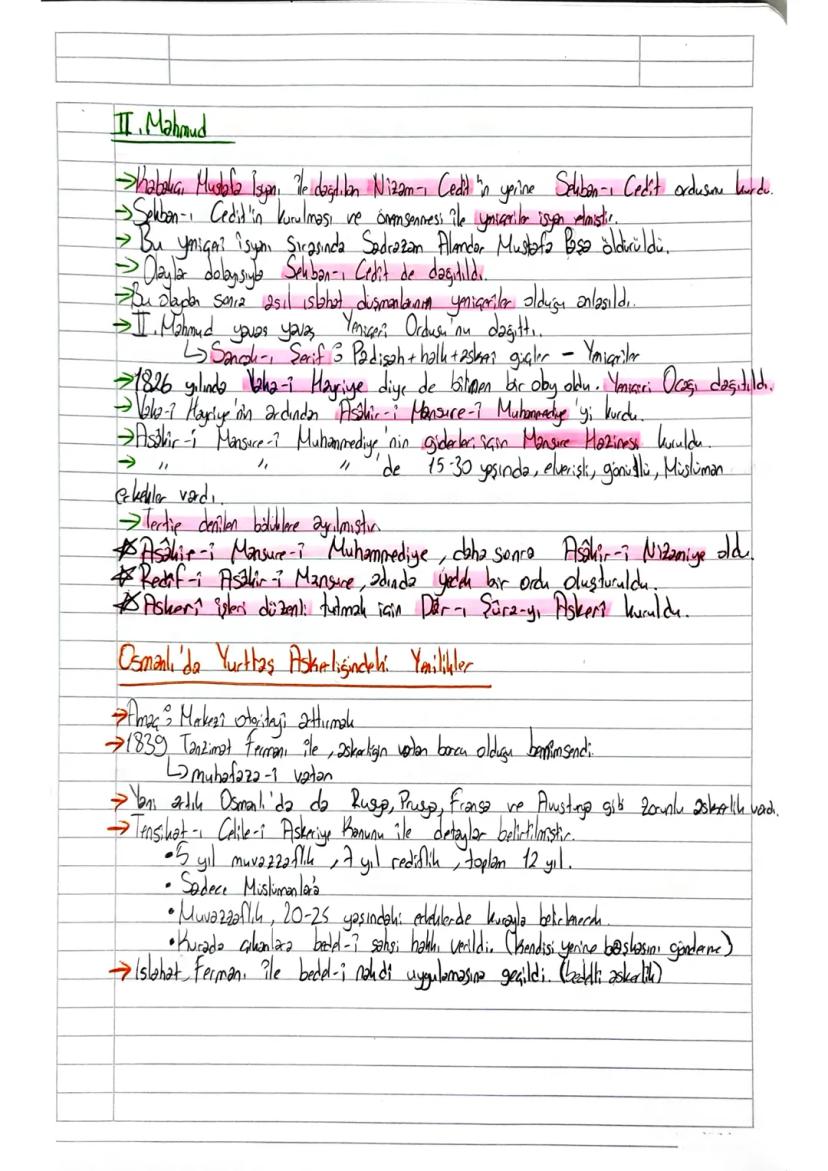 II. Mahmud
→Kabakçı Mustafa İsyanı ile dağıtılan Nizam-ı Cedit'in yerine Sekban-ı Cedit ordusunu kurdu.
→Sekban-ı Cedid'in kurulması ve önemsenmesi ile yeniçeriler isyan etmiştir.
→ Bu yeniçeri isyanı sırasında Sadrazam Alemdar Mustafa Paşa öldürüldü.
→ Olaylar dolayısıyla Sekban-ı Cedit de dağıtıldı.
→Bu olaydan sonra asıl ıslahat düşmanlarının yeniçeriler olduğu anlaşıldı.
→II. Mahmud yavaş yavaş Yeniçeri Ordusu'nu dağıttı.
↳Sancak-ı Şerif : Padişah+halk+askeri güçler - Yeniçeriler
→1826 yılında Vaka-i Hayriye diye de bilinen bir olay oldu. Yeniçeri Ocağı dağıtıldı.
→ Vaka-i Hayriye'nin ardından Asâkir-i Mansure-î Muhammediye'yi kurdu.
→Asâkir-i Mansure-î Muhammediye'nin giderleri için Mansure Hazinesi kuruldu.
→ " " " 'de 15-30 yaşında, elverişli, gönüllü, Müslüman
erkekler vardı.
→Tertip denilen bölüklere ayrılmıştır.
☆Asâkir-î Mansure-î Muhammediye, daha sonra Asâkir-î Nizamiye oldu.
☆ Redif-i Asâkir-î Mansure, adında yedek bir ordu oluşturuldu.
☆Askerî işleri düzenli tutmak için Dâr-ı Şûra-yı Askerî kuruldu.
Osmanlı'da Yurttaş Askerliğindeki Yenilikler
→Amaç : Merkezî otoriteyi arttırmak
→1839 Tanzimat Fermanı ile, askerliğin vatan borcu olduğu benimsendi.
↳muhafaza-i vatan
→ Yani artık Osmanlı'da da Rusya, Prusya, Fransa ve Avusturya gibi zorunlu askerlik vardı.
→ Tensikat-ı Celile-i Askeriye Kanunu ile detaylar belirtilmiştir.
•5 yıl muvazzaflık, 7 yıl rediflik, toplam 12 yıl.
• Sadece Müslümanlara
•Muvazzaflık, 20-25 yaşındaki erkeklerde kurayla belirlenecek
•Kurada çıkanlara bedel-î şahsi hakkı verildi. (kendisi yerine başkasını gönderme)
→ Islahat Fermanı ile bedel-i nakdi uygulamasına geçildi. (bedelli askerlik)